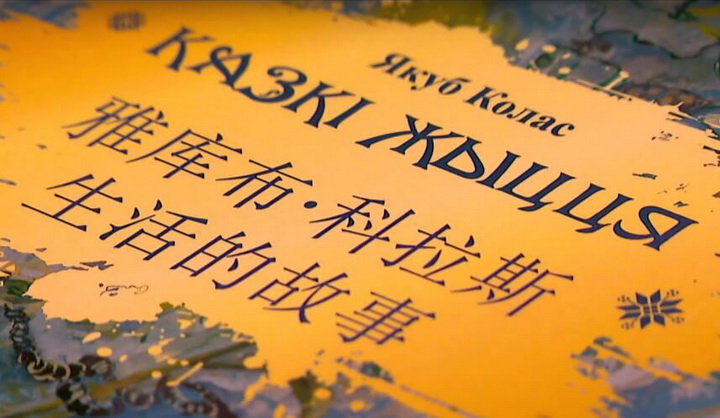 Якуб Колас
КАЗКІ ЖЫЦЦЯ
雅库布·科拉斯
生活的故事